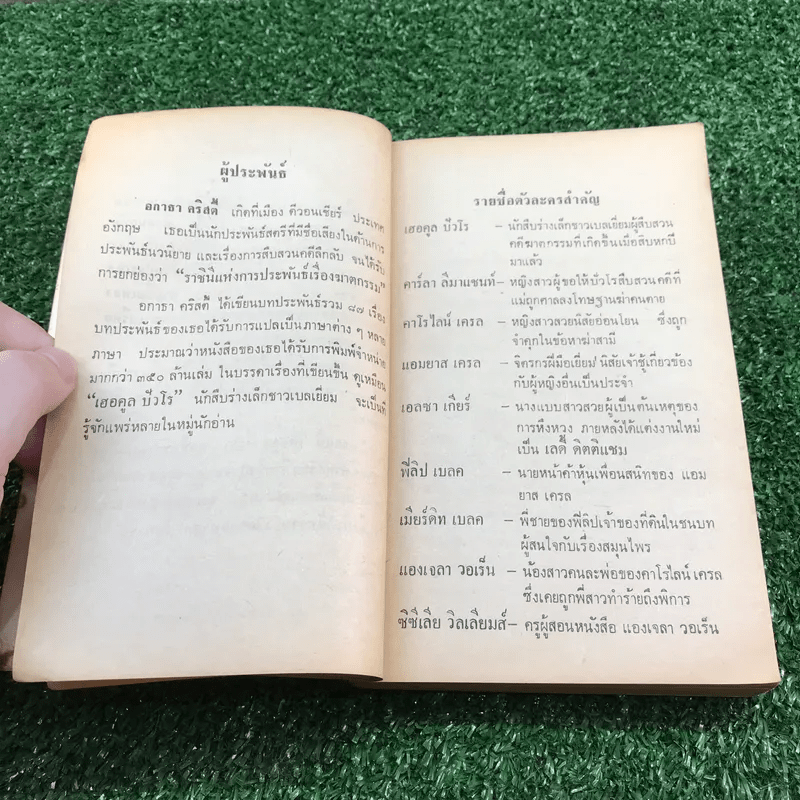 ผู้ประพันธ์
อกาธา คริสตี้ เกิดที่เมือง ดีวอนเชียร์ ประเทศ
อังกฤษ เธอเป็นนักประพันธ์สตรีที่มีชื่อเสียงในด้านการ
ประพันธ์นวนิยาย และเรื่องการสืบสวนคดีลึกลับ จนได้รับ
การยกย่องว่า “ราชินีแห่งการประพันธ์เรื่องฆาตกรรม”
อกาธา คริสตี้ ได้เขียนบทประพันธ์รวม ๘๗ เรื่อง
บทประพันธ์ของเธอได้รับการแปลเป็นภาษาต่าง ๆ หลาย
ภาษา ประมาณว่าหนังสือของเธอได้รับการพิมพ์จำหน่าย
มากกว่า ๓๕๐ ล้านเล่ม ในบรรดาเรื่องที่เขียนขึ้น ดูเหมือน
“เฮอคูล ปัวโร” นักสืบร่างเล็กชาวเบลเยี่ยม จะเป็นที่
รู้จักแพร่หลายในหมู่นักอ่าน
รายชื่อตัวละครสำคัญ
เฮอคูล ปัวโร – นักสืบร่างเล็กชาวเบลเยี่ยมผู้สืบสวน
คดีฆาตกรรมที่เกิดขึ้นเมื่อสิบหกปี
มาแล้ว
คาร์ลา ลีมานชนท์– หญิงสาวผู้ขอให้ปัวโรสืบสวนคดีที่
แม่ถูกศาลลงโทษฐานฆ่าคนตาย
คาโรไลน์ เครล – หญิงสาวสวยนิสัยอ่อนโยน ซึ่งถูก
จำคุกในข้อหาฆ่าสามี
แอมยาส เครล – จิตรกรฝีมือเยี่ยม นิสัยเจ้าชู้เกี่ยวข้อง
กับผู้หญิงอื่นเป็นประจำ
เอลซา เกียร์ – นางแบบสาวสวยผู้เป็นต้นเหตุของ
การหึงหวง ภายหลังได้แต่งงานใหม่
เป็น เลดี้ ดิตติแชม
ฟิลิป เบลค – นายหน้าค้าหุ้นเพื่อนสนิทของ แอม
ยาส เครล
เมียร์ดิท เบลค – พี่ชายของฟิลิปเจ้าของที่ดินในชนบท
ผู้สนใจกับเรื่องสมุนไพร
แองเจลา วอเร็น – น้องสาวคนละพ่อของคาโรไลน์ เครล
ซึ่งเคยถูกพี่สาวทำร้ายถึงพิการ
ซิซีเลีย วิลเลียมส์– ครูผู้สอนหนังสือ แองเจลา วอเร็น